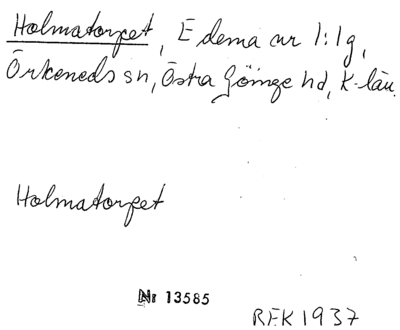 Holmatorpet, Edema nr 1:1g,
Örkeneds sn, Östra Göinge hd, K-län.
Holmatorpet
Nr 13585
REK 1937